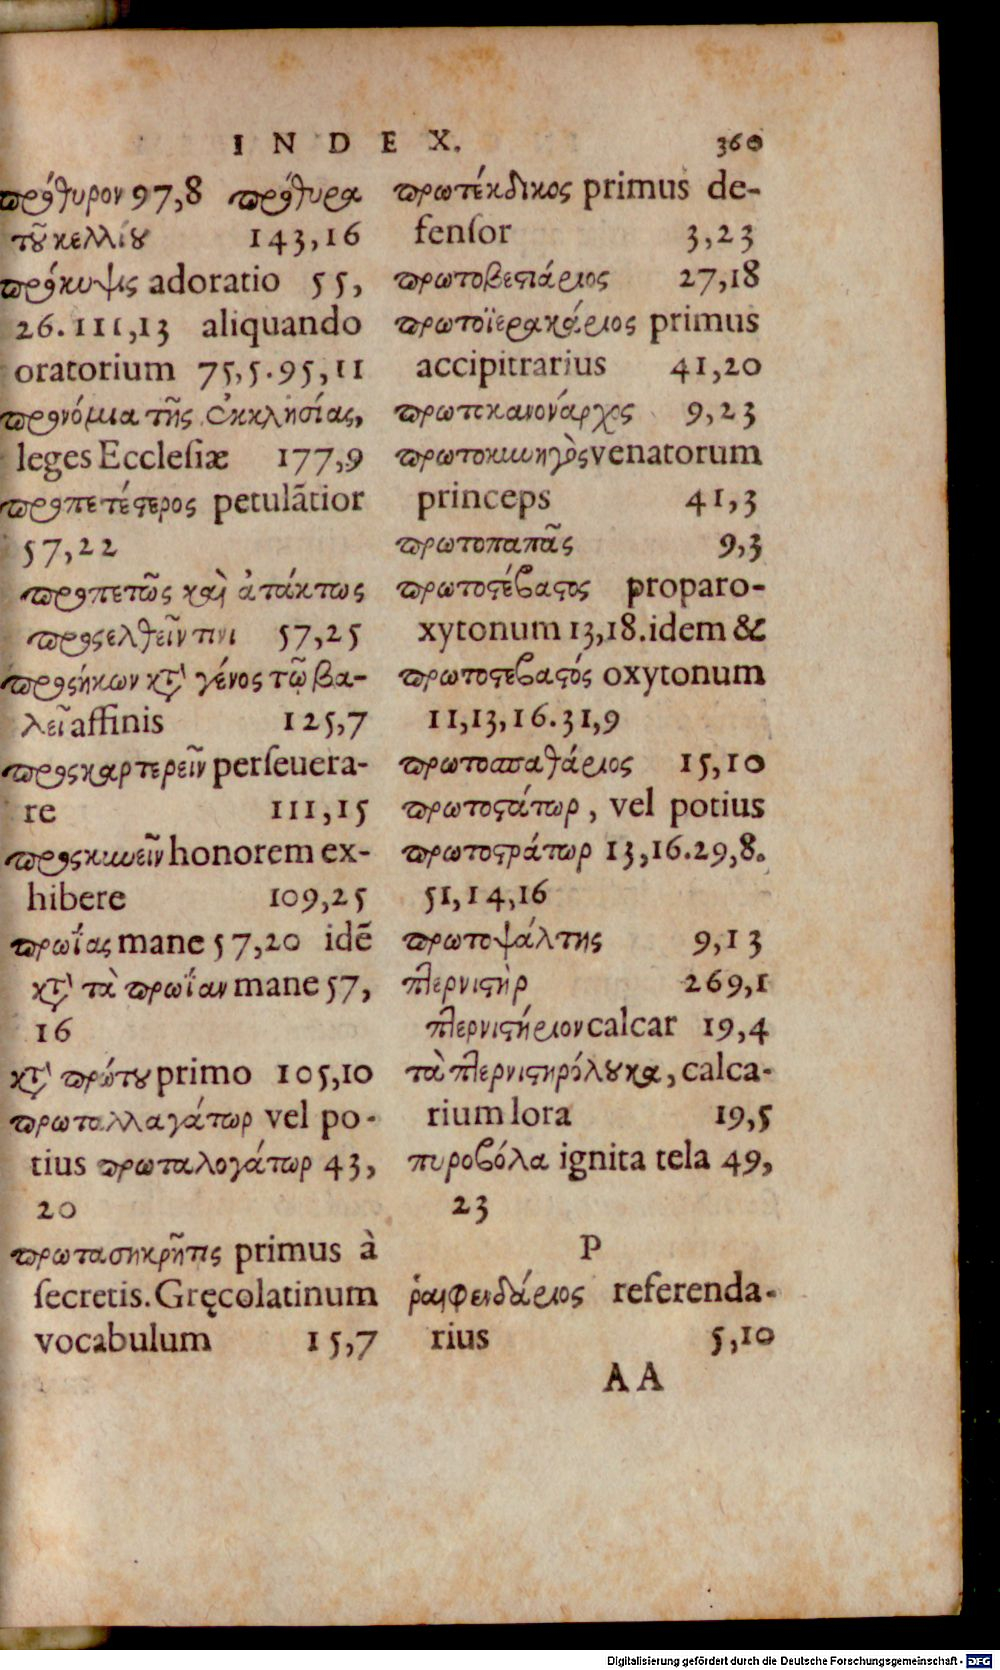 INDEX. 360
πρόθυρον 97,8 πρόθυρα
τοῦ κελλίου 143,16
πρόκυψις adoratio 55,
26. 111,13 aliquando
oratorium 75,5. 95,11
προνόμια τῆς ἐκκλησίας,
leges Ecclesiæ 177,9
προπετέςερος petulãtior
57,22
προπετῶς καὶ ἀτάκτως
προςελθεῖν τινι 57,25
προςήκων κτ' γένος τῷ βα-
λεῖ affinis 125,7
προςκαρτερεῖν perseuera-
re 111,15
προςκυνεῖν honorem ex-
hibere 109,25
πρωΐας mane 57,20 idẽ
κτ' τὰ πρωΐαν mane 57,
16
κτ' πρώτου primo 105,10
πρωταλλαγάτωρ vel po-
tius πρωταλογάτωρ 43,
20
πρωτασηκρῆτις primus à
secretis. Gręcolatinum
vocabulum 15,7
πρωτέκδικος primus de-
fensor 3,23
πρωτοβεςιάριος 27,18
πρωτοϊερακάριος primus
accipitrarius 41,20
πρωτοκανονάρχος 9,23
πρωτοκυνηγὸς venatorum
princeps 41,3
πρωτοπαπᾶς 9,3
πρωτοςέβαςος proparo-
xytonum 13,18. idem &
πρωτοςεβαςός oxytonum
11,13,16. 31,9
πρωτοσπαθάριος 15,10
πρωτοςάτωρ, vel potius
πρωτοςράτωρ 13,16. 29,8.
51,14,16
πρωτοψάλτης 9,13
πτερνιςὴρ 269,1
πτερνιςήριον calcar 19,4
τὰ πτερνιςηρόλουκα, calca-
rium lora 19,5
πυροβόλα ignita tela 49,
23
Ρ
ῥαιφενδάριος referenda-
rius 5,10
AA
Digitalisierung gefördert durch die Deutsche Forschungsgemeinschaft - DFG